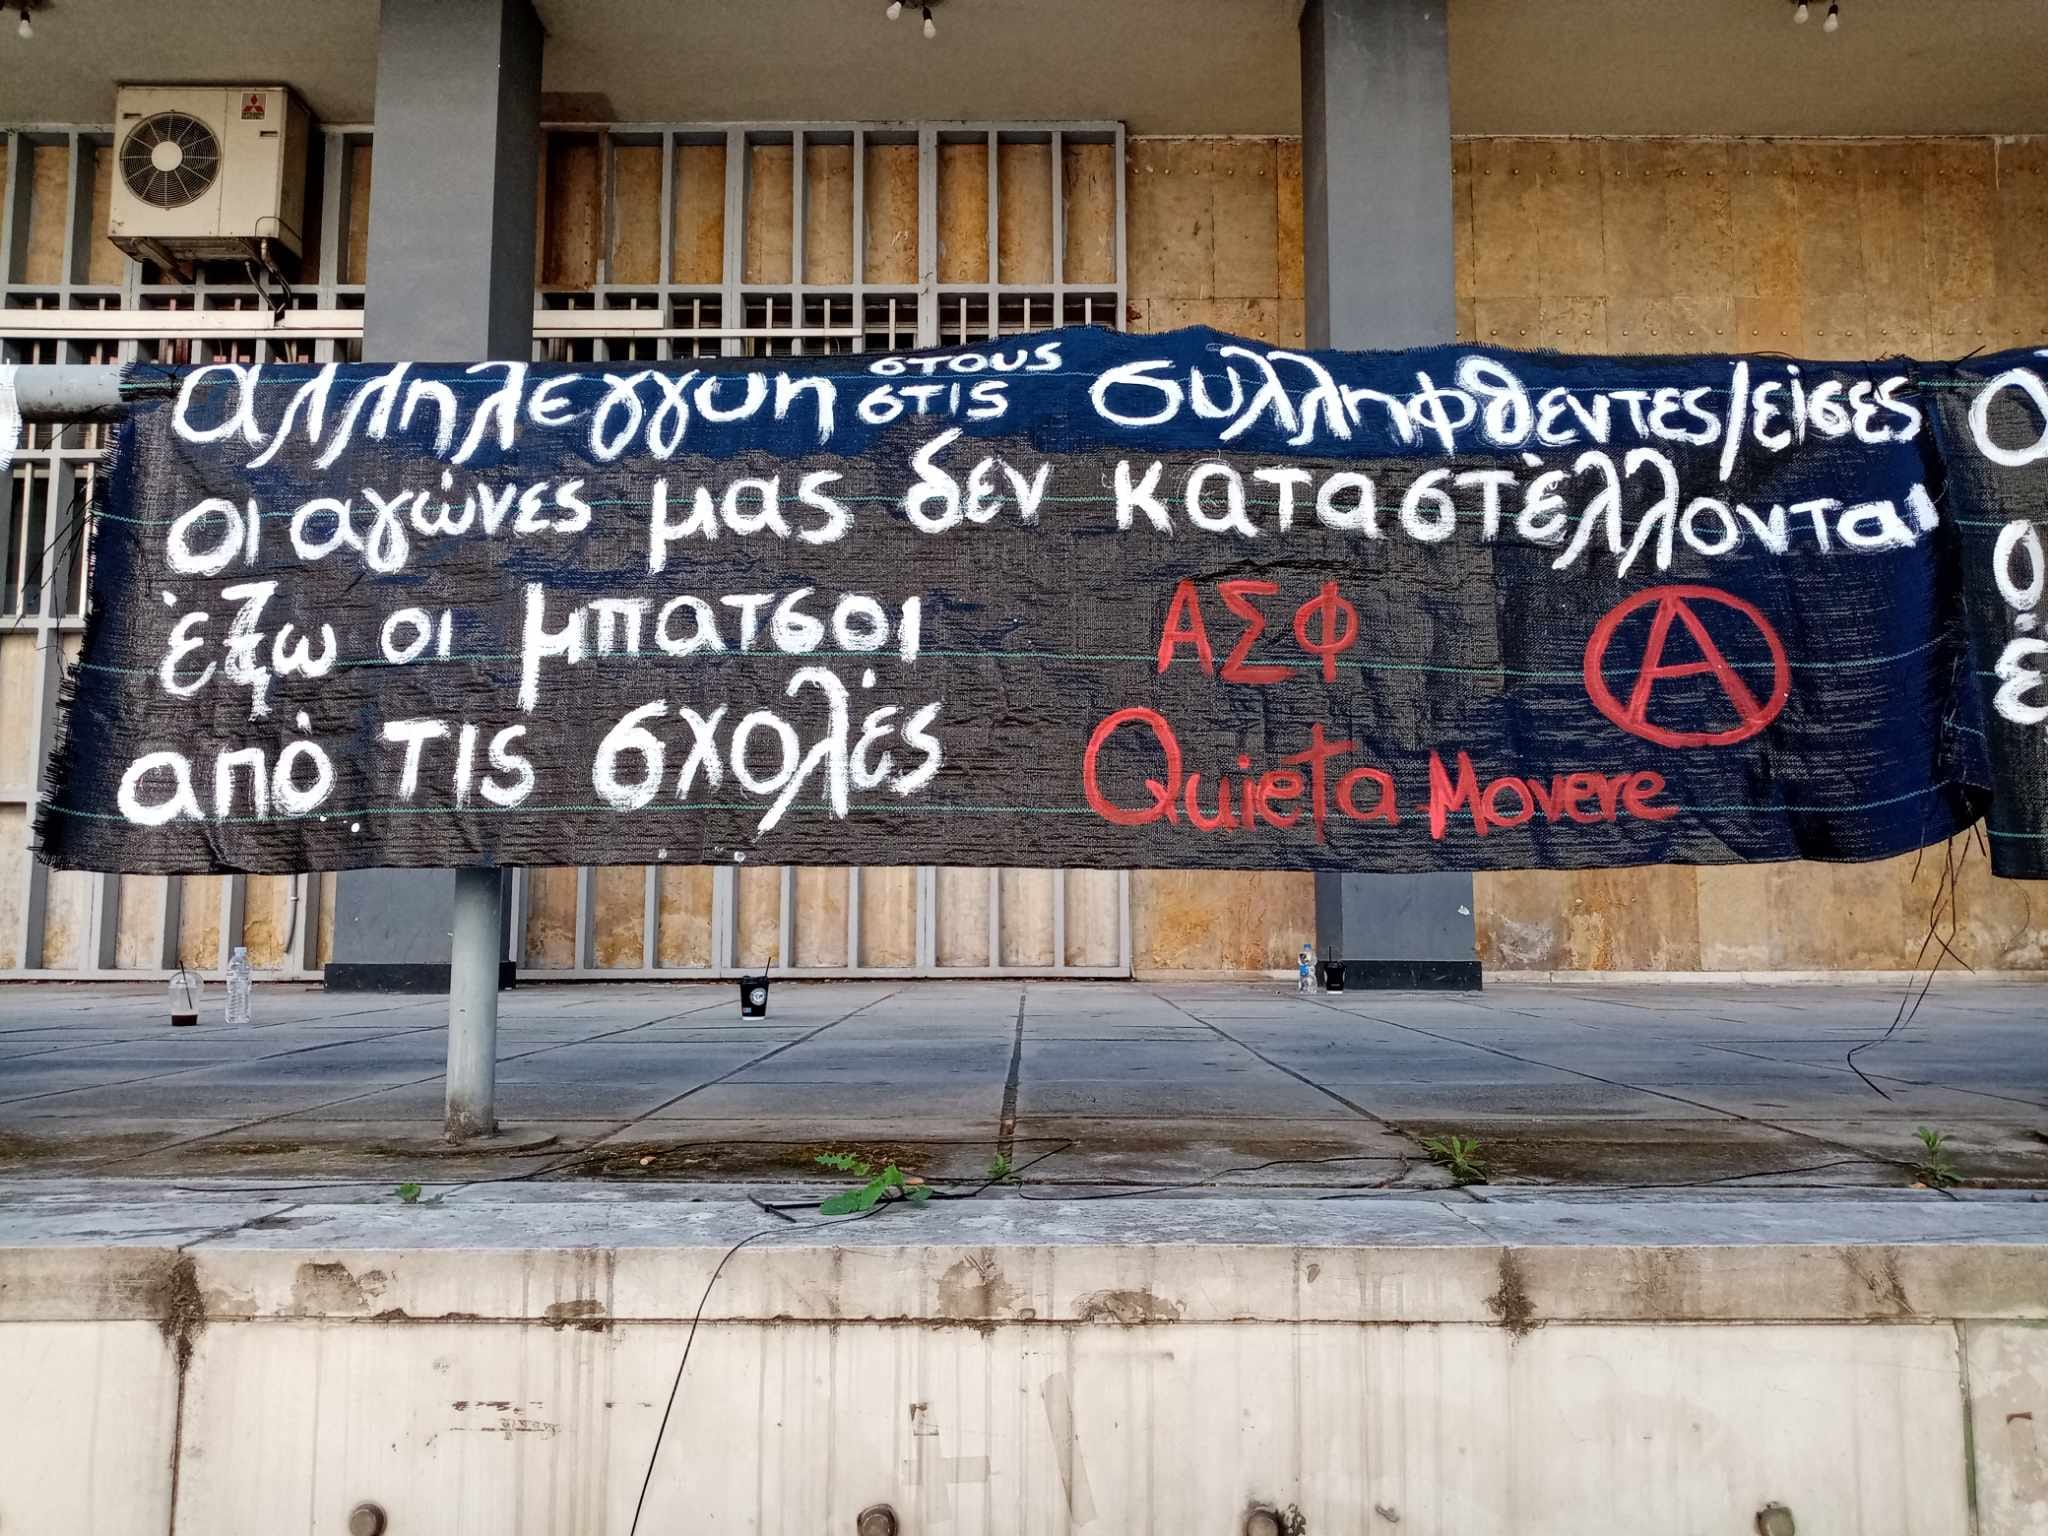 αλληλεγγυη στους στις συλληφθεντες/είσες
οι αγώνες μας δεν καταστέλλονται
έξω οι μπατσοι
από τις σχολές
ΑΣΦ
Quieta Movere